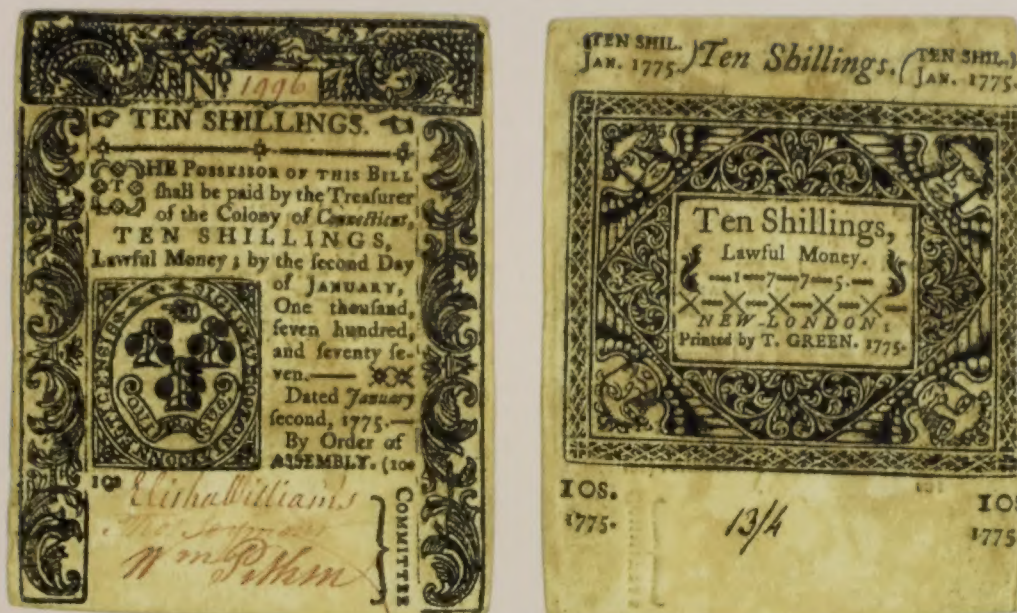 No 1996
TEN SHILLINGS.
THE POSSESSOR OF THIS BILL
ſhall be paid by the Treaſurer
of the Colony of Connecticut,
TEN SHILLINGS,
Lawful Money; by the ſecond Day
of JANUARY,
One thouſand,
ſeven hundred,
and ſeventy ſe-
ven.——
Dated January
ſecond, 1775.—
By Order of
ASSEMBLY. (10s
10s
Elisha Williams
Wm Pitkin
COMMITTEE
TEN SHIL. JAN. 1775.) Ten Shillings. (TEN SHIL.) JAN. 1775.
Ten Shillings,
Lawful Money.
1—7—7—5.
NEW-LONDON:
Printed by T. GREEN. 1775.
IOS.
1775.
13/4
IOS
1775